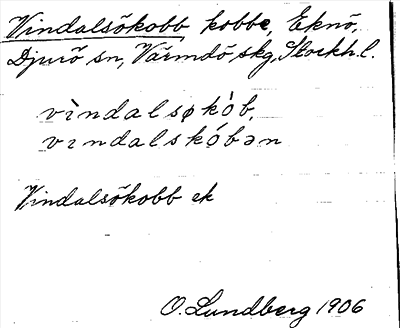 Vindalsökobb kobbe, Eknö,
Djurö sn, Värmdö skg, Stockh. l.
vìndalsøkòb,
vɪndalskóbən
Vindalsökobb ek
O. Lundberg 1906